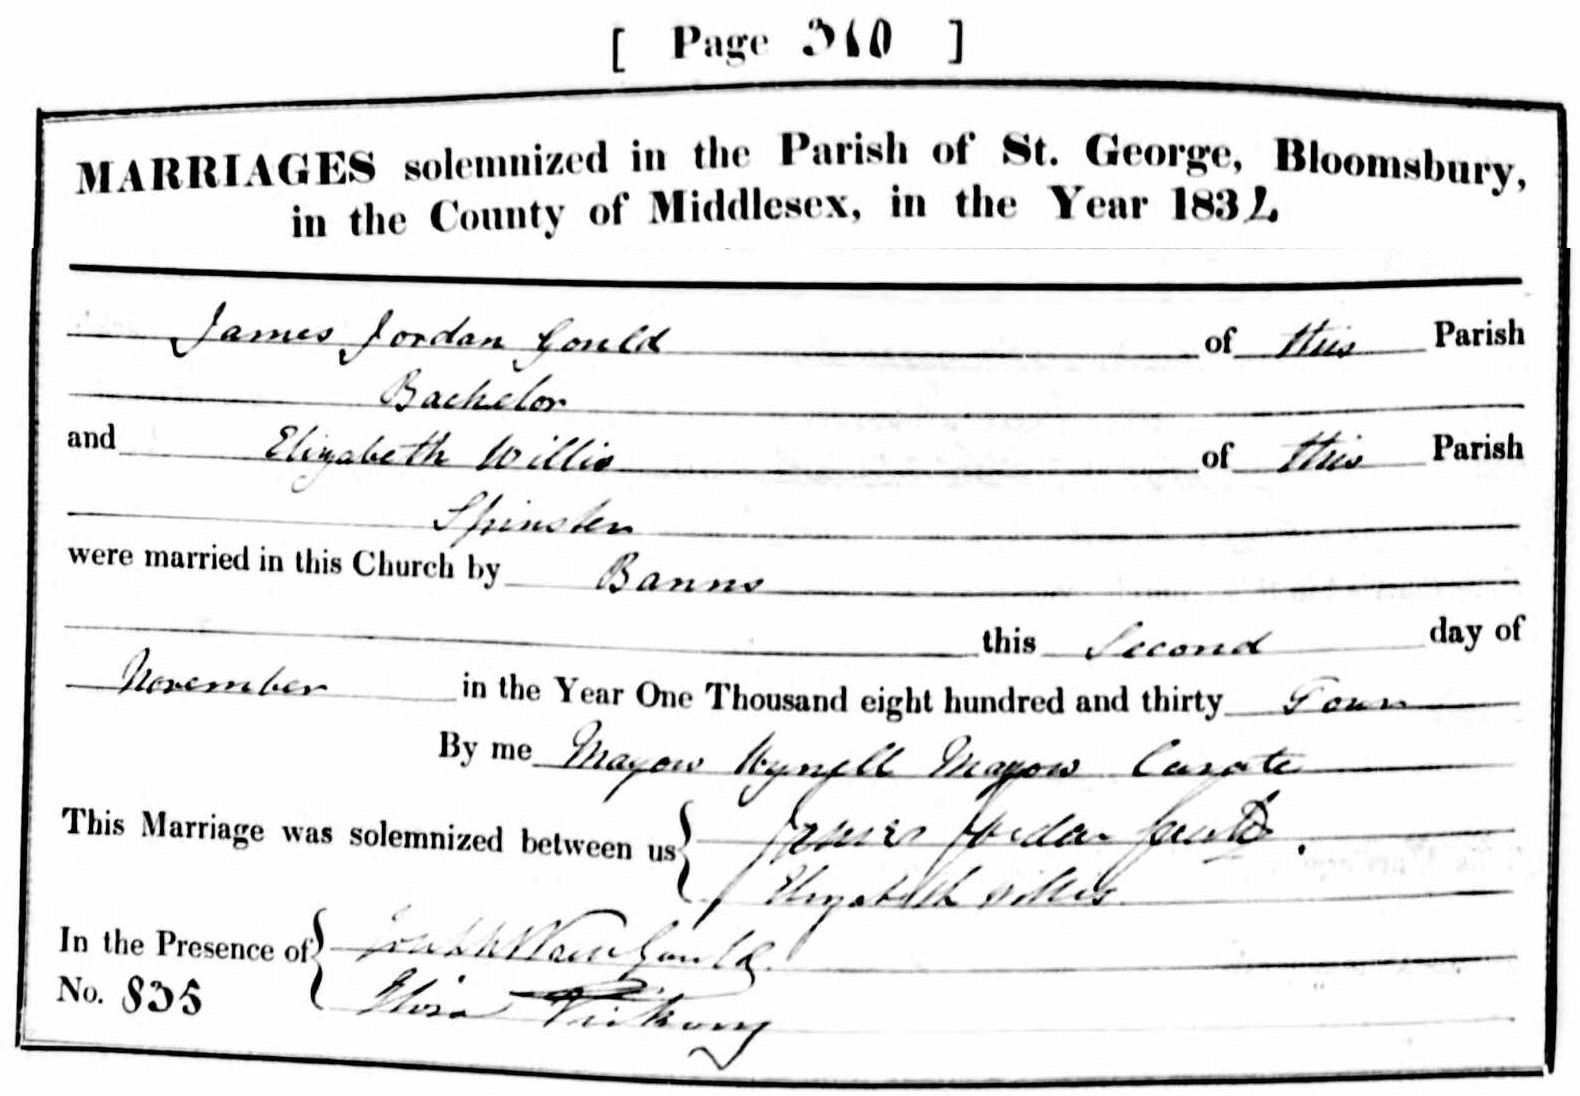 [ Page 310 ]
MARRIAGES solemnized in the Parish of St. George, Bloomsbury,
in the County of Middlesex, in the Year 1834
James Jordan Gould of this Parish
Bachelor
and Elizabeth Willis of this Parish
Spinster
were married in this Church by Banns
this Second day of
November in the Year One Thousand eight hundred and thirty Four
By me Mayow Wynell Mayow Curate
This Marriage was solemnized between us James Jordan Gould
Elizabeth Willis
In the Presence of Gould
No. 835 Eliza